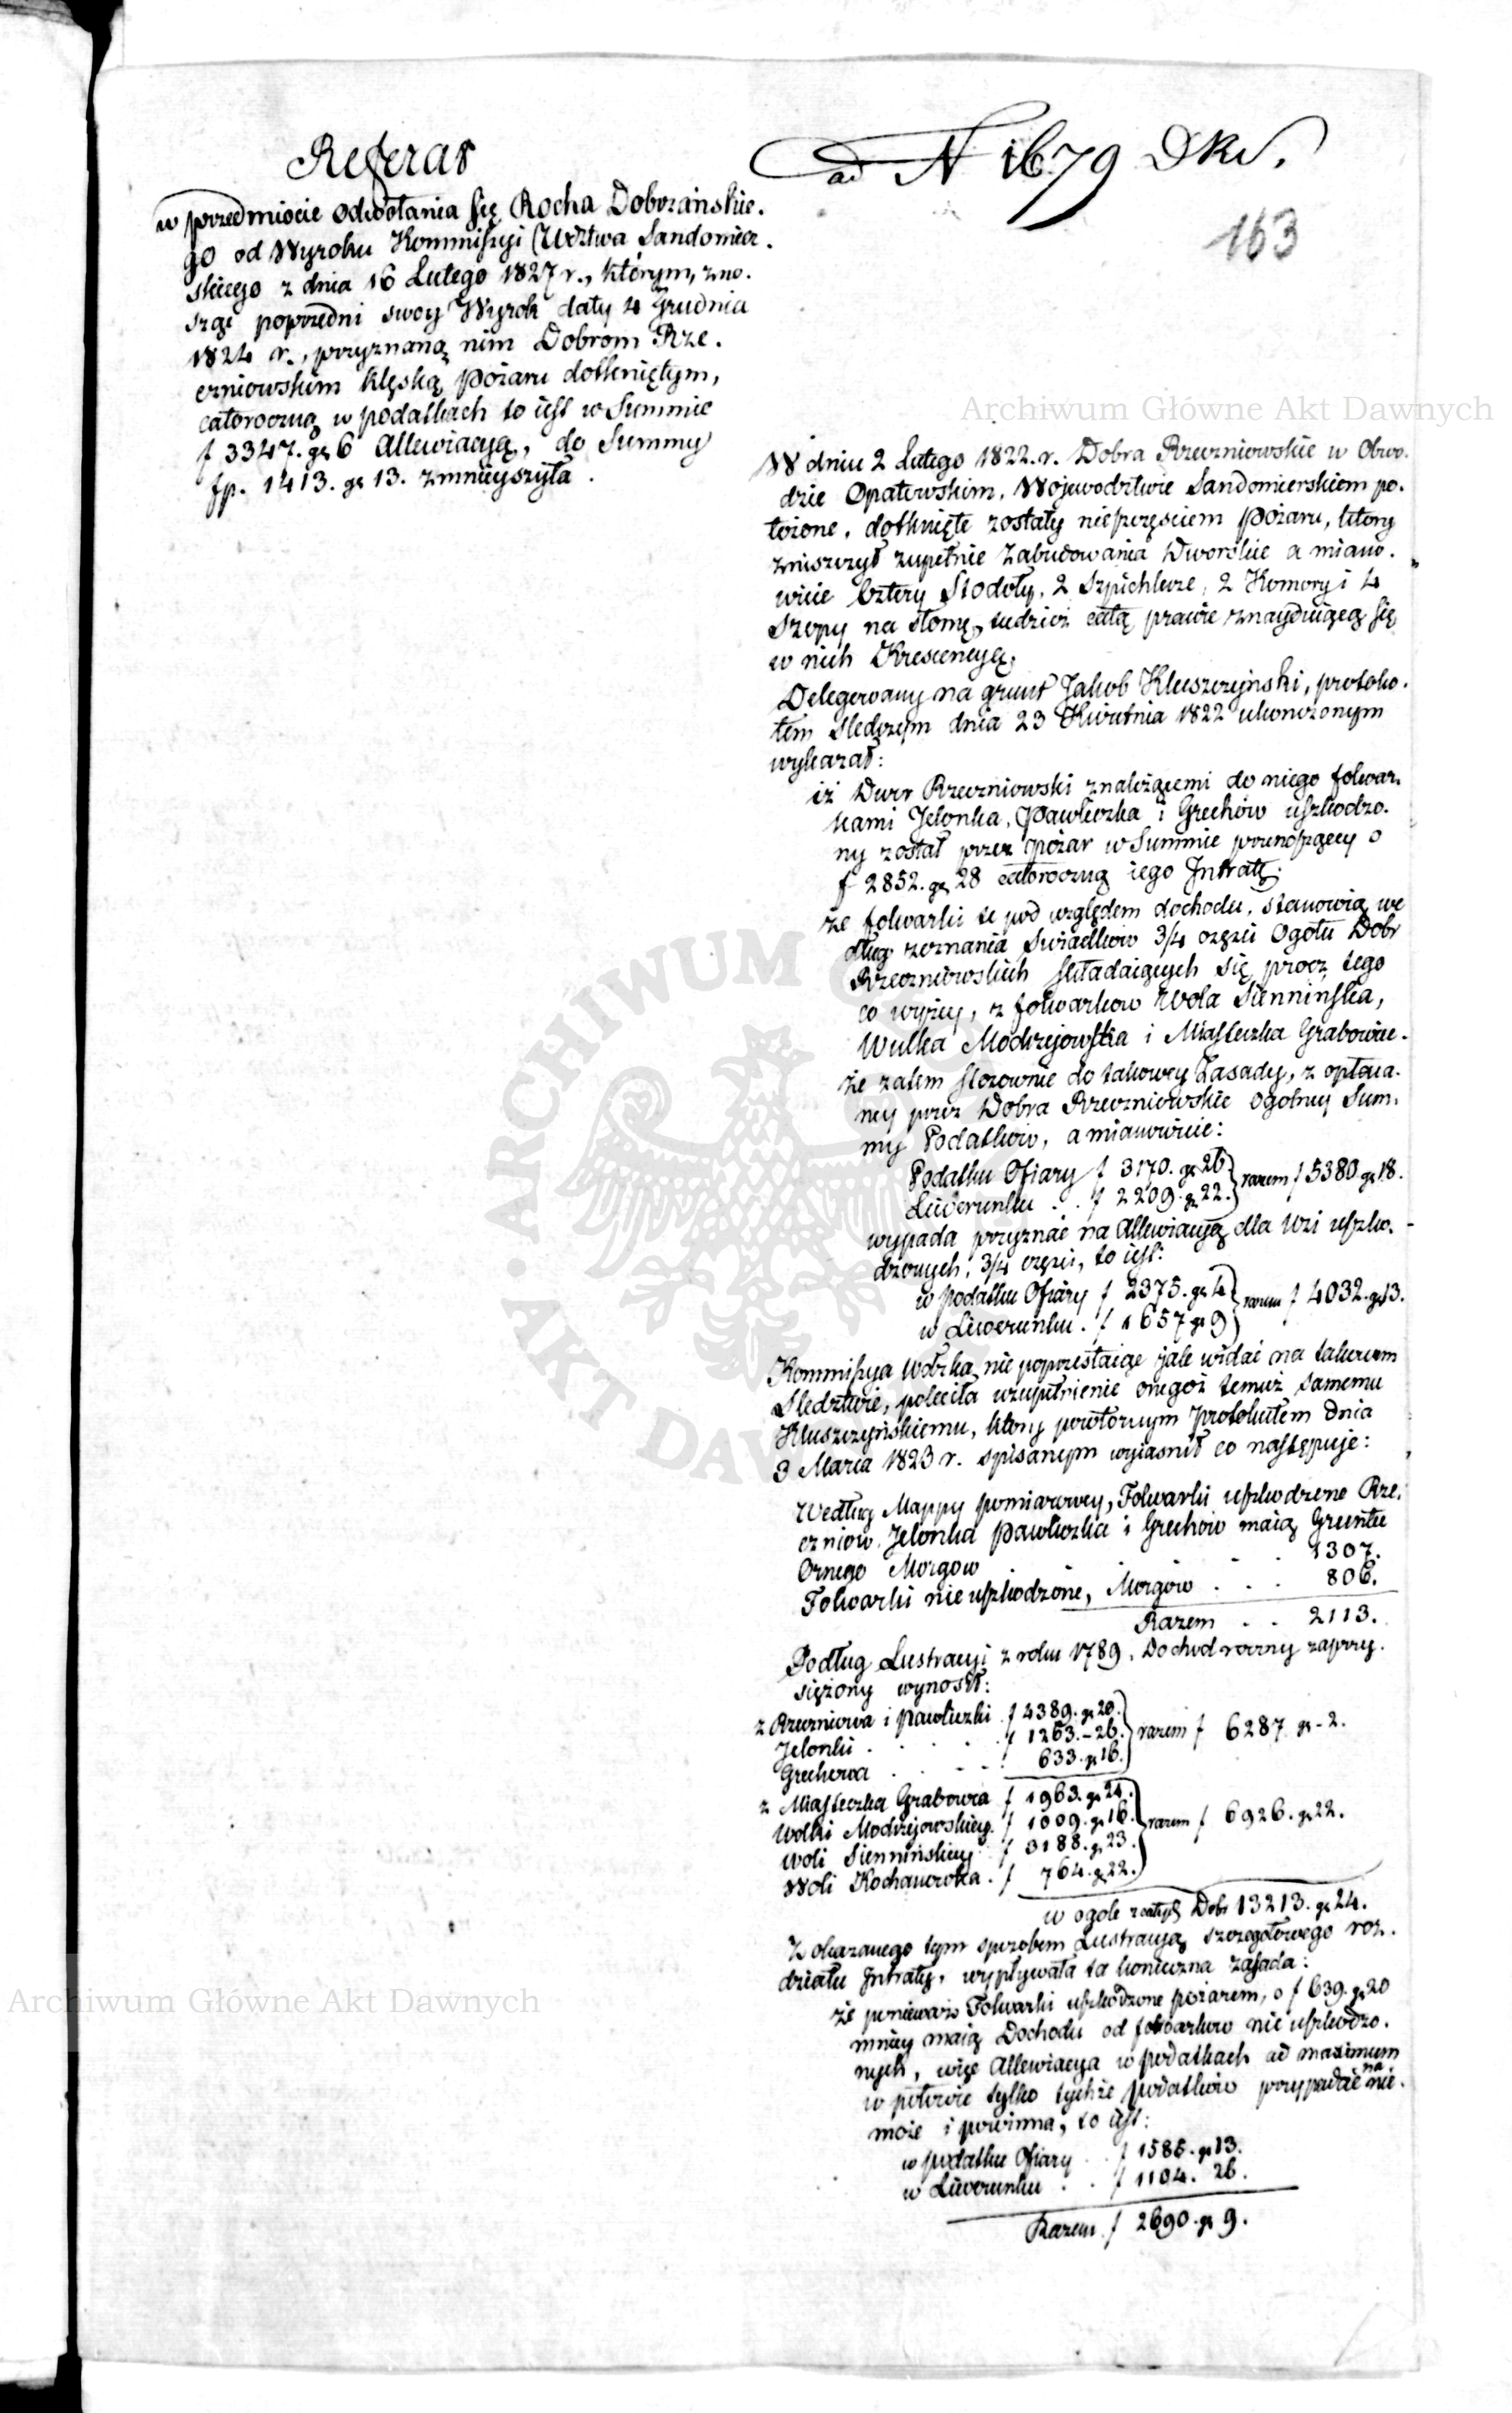 Referat
w przedmiocie odwołania się Rocha Doborzańskie.
go od Wyroku Kommissyi Wdztwa Sandomier.
skiego z dnia 16 Lutego 1827 r., którym, zno.
sząc poprzedni swoy Wyrok daty 4 Grudnia
1824 r., przyznaną nim Dobrom Rze.
czniowskim klęską Pożaru dotkniętym,
całoroczną w podatkach to iest w Summie
f 3347. gr 6 Allewiacyą, do Summy
fp. 1413. gr 13. zmnieyszyła.
ad N 1679 DKS.
163
Archiwum Główne Akt Dawnych
W dniu 2 Lutego 1822. r. Dobra Rzeczniowskie w Obwo.
dzie Opatowskim, Wojewodztwie Sandomierskiem po.
łożone, dotknięte zostały nieszczęściem Pożaru, który
zniszczył zupełnie Zabudowania Dworskie a miano.
wicie Cztery Stodoły, 2 Szpichlerze, 2 Komory i 4
Szopy na słomę, tudzież całą prawie znayduiącą się
w nich Krescencyą.
Delegowany na grunt Jakob Kluszczyński, protoko.
łem śledczym dnia 23 Kwietnia 1822 ukończonym
wykazał:
iż Dwór Rzeczniowski z należącemi do niego folwar.
kami Jelonka, Pawliczka i Grechów uszkodzo.
ny został przez pożar w Summie przenoszącey o
f 2852. gr 28 całoroczną iego Intratę.
że folwarki te pod względem dochodu, stanowią we
dług zeznania Świadków 3/4 części Ogołu Dobr
Rzeczniowskich składaiących się prócz tego
co wyżey, z folwarkow Wola Siennińska,
Wulka Modrzejowska i Miasteczka Grabowiec.
że zatem stosownie do takowey Zasady, z opłaca.
ney przez Dobra Rzeczniowskie ogolney Sum.
my Podatków, a mianowicie:
Podatku Ofiary f 3170. gr 26 } razem f 5380. gr 18.
Liwerunku . . f 2209. gr 22. }
wypada przyznać na Allewiacyą dla Wsi uszko.
dzonych, 3/4 części, to iest:
w podatku Ofiary f 2375. gr 4 } razem f 4032. gr 13.
w Liwerunku . f 1657 gr 9 }
Kommissya Wdzka, nie poprzestaiąc jak widać na takowem
Śledztwie, poleciła uzupełnienie onegoż temuż samemu
Kluszczyńskiemu, który powtornym Protokułem dnia
3 Marca 1823 r. spisanym wyiaśnił co następuje:
Według Mappy pomiarowey, Folwarki uszkodzone Rze.
czniow, Jelonka Pawliczka i Grechów maią Gruntu
Ornego Morgow . . . . 1307.
Folwarki nie uszkodzone, Morgów . . . 806.
Razem . . 2113.
Podług Lustracyi z roku 1789, Dochod roczny zaprzy.
siężony wynosił:
z Rzeczniowa i Pawliczki f 4389. gr 20. } razem f 6287 gr - 2.
Jelonki . . . . f 1263. - 26. }
Grechowa . . . . 633. gr 16. }
z Miasteczka Grabowca f 1963. gr 21. } razem f 6926. gr 22.
Wolki Modrzejowskiey. f 1009. gr 16. }
Woli Siennińskiey f 3188. gr 23. }
Woli Kochanowska . f 764. gr 22. }
w ogole z całych Dobr 13213. gr 24.
Z okazanego tym sposobem Lustracyą szczegołowego roz.
działu Intraty, wypływała ta konieczna zasada:
że ponieważ Folwarki uszkodzone pożarem, o f 639. gr 20
mniey maią Dochodu od folwarkow nie uszkodzo.
nych, więc Allewiacya w podatkach ad maximum
w połowie tylko tychże podatków przypadać na nie
może i powinna, to iest:
w podatku Ofiary . . f 1585. gr 13.
w Liwerunku . . f 1104. 26.
Razem f 2690. gr 9.
Archiwum Główne Akt Dawnych
ARCHIWUM GŁÓWNE AKT DAWNYCH